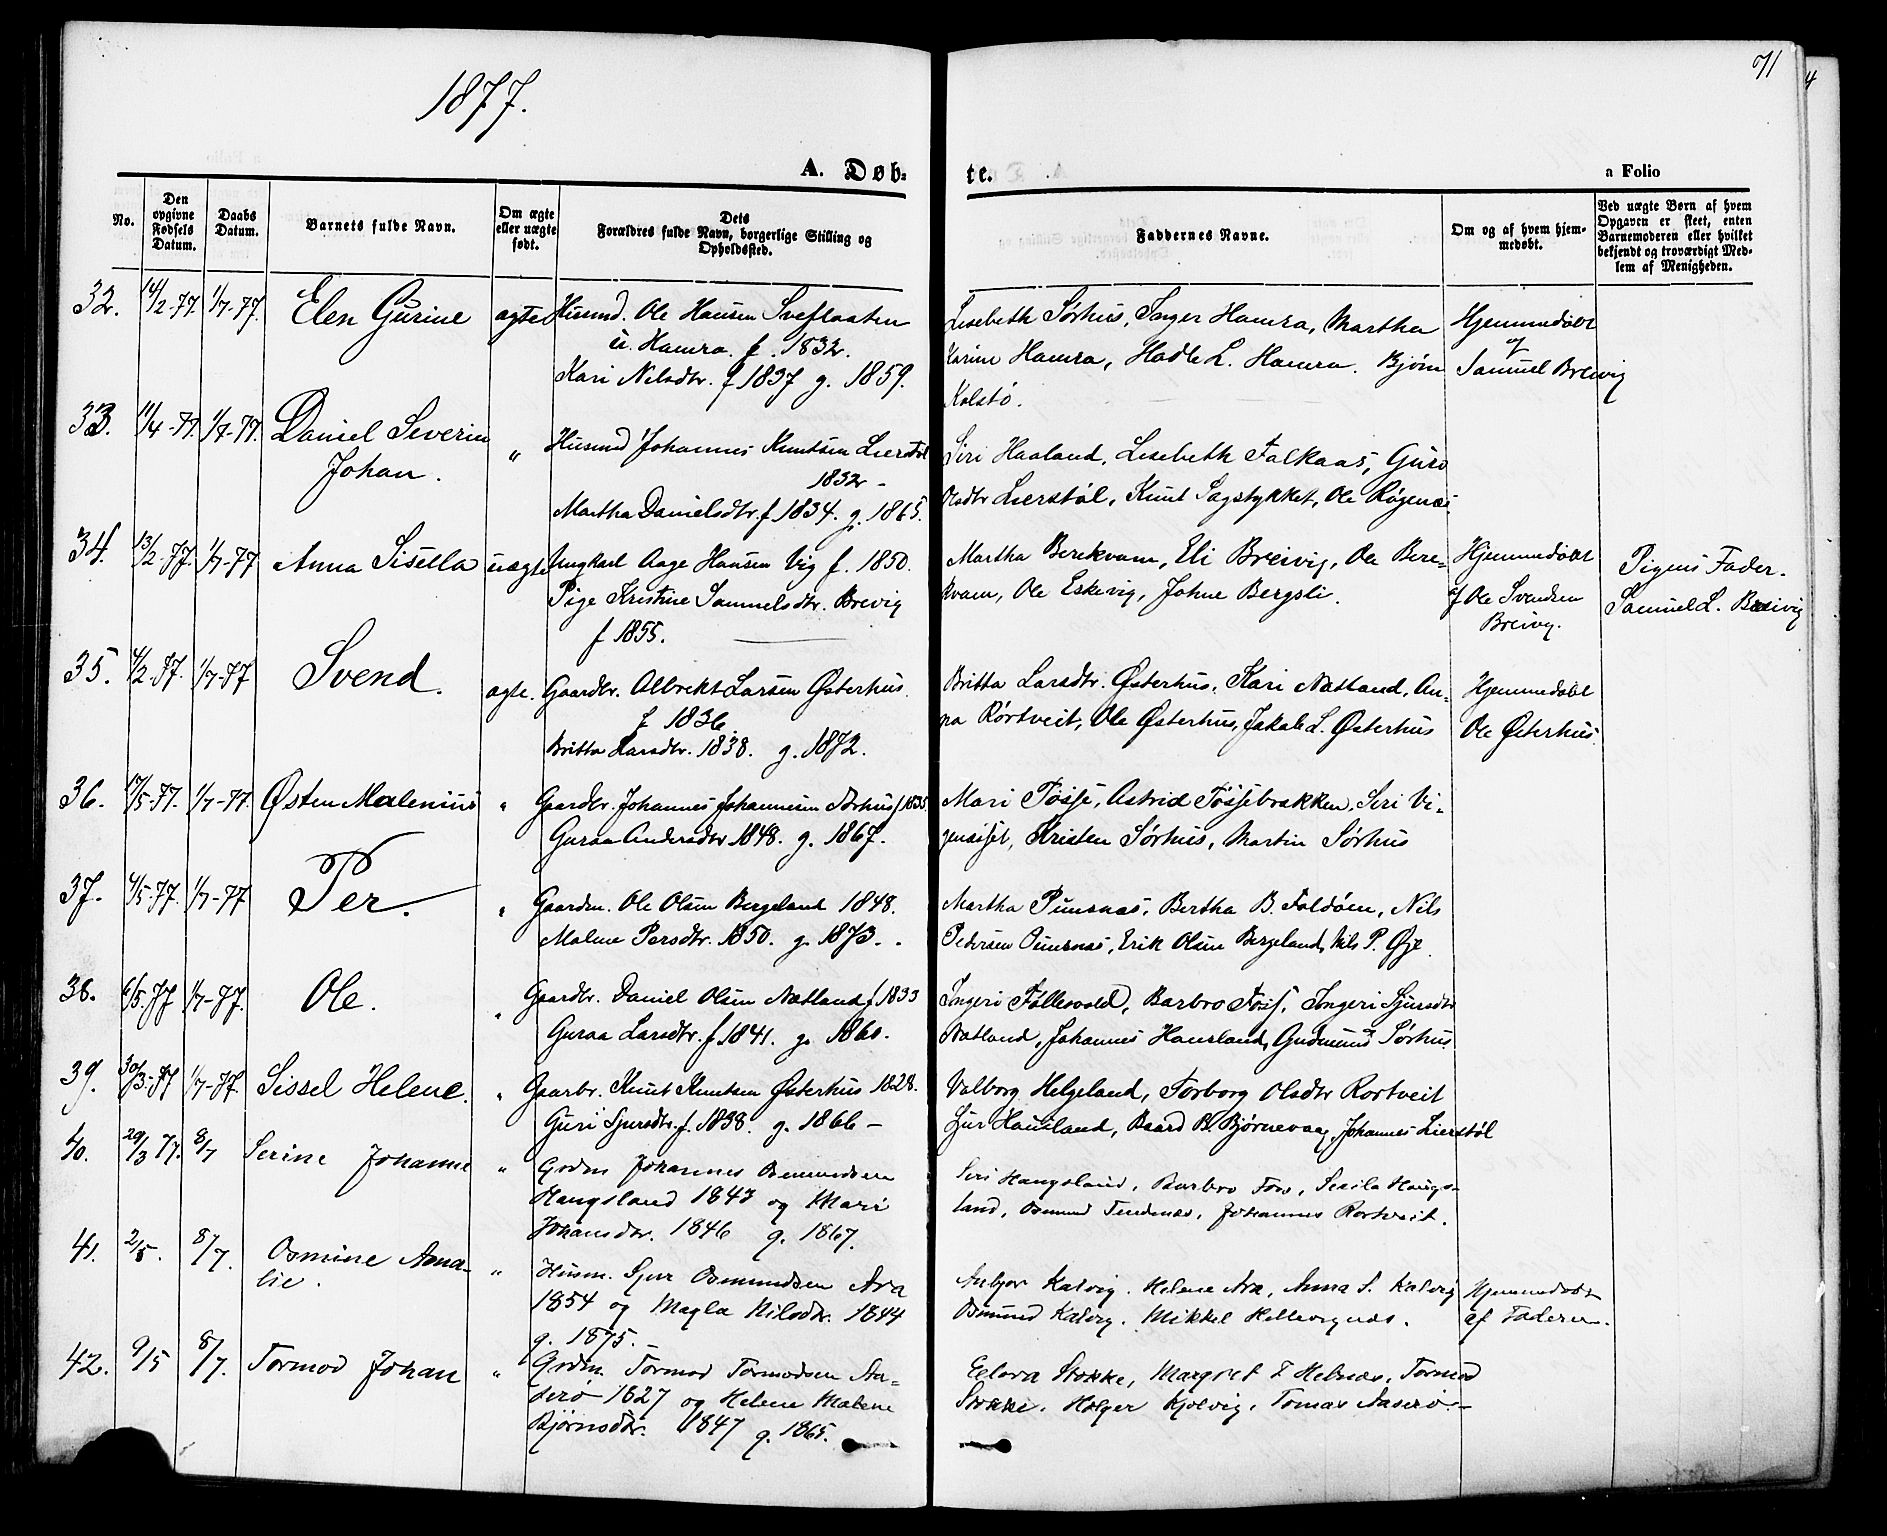 1877.
71
A. Døb-
te.
a Folio
No.
Den
opgivne
Fødsels
Datum.
Daabs
Datum.
Barnets fulde Navn.
Om ægte
eller uægte
født.
Dets
Forældres fulde Navn, borgerlige Stilling og
Opholdssted.
Faddernes Navne.
Om og af hvem hjem-
medøbt.
Ved uægte Børn af hvem
Opgaven er skeet, enten
Barnemoderen eller hvilket
bekjendt og troværdigt Med-
lem af Menigheden.
32. 14/2-77. 1/7-77. Elen Gurine ægte Husmd. Ole Hansen Sveflaaten
u. Hamra. f. 1832.
Kari Nelsdtr. f 1837 g. 1859.
Lisebeth Sørhus, Inger Hamra, Martha
Karine Hamra, Hadle L. Hamra. Bjørn
Kolstø.
Hjemmedøbt
af
Samuel Breivig
33. 11/4-77. 1/7-77. Daniel Severin
Johan.
" Husmd Johannes Knutsen Lierstøl
1832 -
Martha Danielsdtr. f 1834. g. 1865.
Siri Haaland, Lisebeth Falkaas, Guro
Olsdtr Lierstøl, Knut Sagstykket, Ole Røgenæs
34. 13/2-77. 1/7-77 Anna Sisella uægte Ungkarl Aage Hansen Vig f. 1850.
Pige Kristine Samuelsdtr. Brevig
f 1855.
Martha Berekvam, Eli Breivig, Ole Bere-
kvam, Ole Eskevig, Johne Bergsli.
Hjemmedøbt
af Ole Svendsen
Breivig.
Pigens Fader.
Samuel L. Breivig
35. 4/2-77. 1/7-77 Svend. ægte. Gaardbr. Albrekt Larsen Østerhus.
f 1836
Britta Larsdtr. 1838. g. 1872.
Britta Larsdtr. Østerhus, Kari Natland, An-
na Rørtveit, Ole Østerhus, Jakob L. Østerhus
Hjemmedøbt
Ole Østerhus.
36. 17/5-77. 1/7-77. Østen Malenius " Gaardbr. Johannes Johannesen Sørhus f 1835.
Guraa Andersdtr 1848. g. 1867.
Mari Tøsse, Astrid Tøssebrækken, Siri Vi-
, Kristen Sørhus, Martin Sørhus
37. 4/5-77. 1/7-77 Per. " Gaardm. Ole Olsen Bergeland 1848.
Malene Persdtr. 1850. g. 1873.
Martha Punsnæs, Bertha B. Foldøen, Nils
Pedersen Punsnæs, Erik Olsen Bergeland, Nils P. Øje
38. 6/5-77 1/7-77. Ole. " Gaardbr. Daniel Olsen Natland f 1833
Guraa Larsdtr. f 1841. g. 1860.
Ingeri Følleswold, Barbro , Ingeri Sjursdtr
Natland, Johannes Hausland, Gudmund Sørhus
39. 30/3-77 1/7-77. Sissel Helene. " Gaarbr. Knut Knutsen Østerhus 1828.
Guri Sjursdtr. f. 1838. g. 1866 -
Valborg Helgeland, Torborg Olsdtr Rortveit
Sjur Hausland, Baard B. Bjørnevaag, Johannes Lierstøl
40. 29/3 77. 8/7 Serine Johanne " Grdm Johannes Osmundsen
Haugsland 1843 og Mari
Johansdtr. 1846 g. 1867.
Siri Haugsland, Barbro , Haugs-
land, Osmund , Johannes Rortveit.
41. 2/5. 8/7. Osmine Ama-
lie.
" Husm. Sjur Osmundsen Ara
1854 og Magla Nilsdtr. 1844
g. 1875.
Anbjor Kalvig. Helene Ara, Anna S. Kalvig
Osmund Kalvig. Mikkel Hellevignæs.
Hjemmedøbt
af Faderen.
42. 9/5 8/7. Tormod Johan " Grdm. Tormod Tormodsen Aa-
serø 1827 og Helene Malene
Bjørnsdtr. 1847 g. 1865.
Elevra Stokke, Margret T Helnæs, Tormod
Stokke. Holger Kjølvig, Tomas Aaserø.